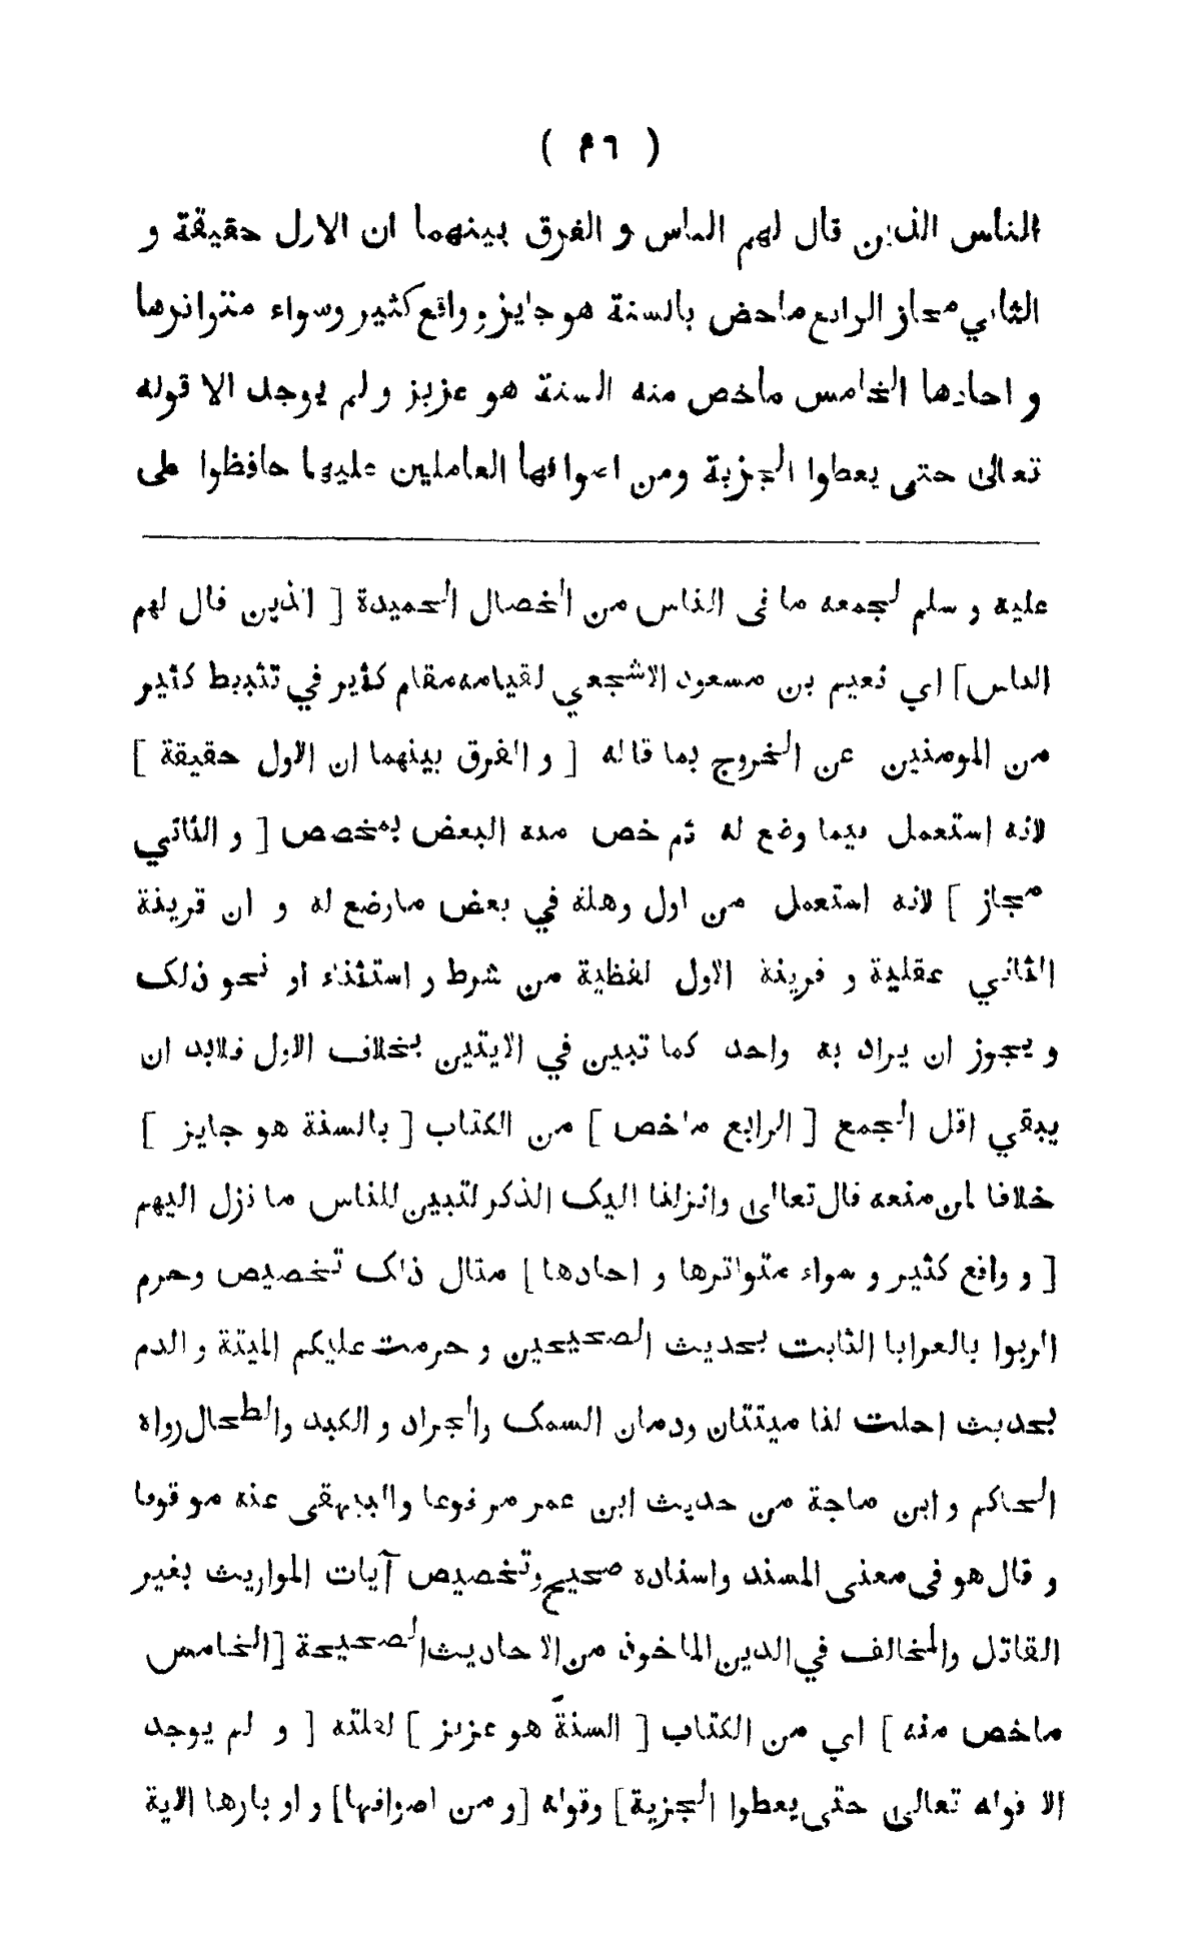 ( ٦٤ )
الناس الذين قال لهم الناس و الفرق بينهما ان الاول حقيقة و
الثاني مجاز الرابع ماخص بالسنة هو جايز و واقع كثير وسواء متواترها
و احادها الخامس ماخص منه السنة هو عزيز و لم يوجد الا قوله
تعالى حتى يعطوا الجزية ومن اصوافها العاملين عليها حافظوا على
عليه و سلم لجمعه ما فى الناس من الخصال الحميدة [ الذين قال لهم
الناس] اي نعيم بن مسعود الاشجعي لقيامه مقام كثير في تثبيط كثير
من المومنين عن الخروج بما قاله [ و الفرق بينهما ان الاول حقيقة ]
لانه استعمل فيما وضع له ثم خص منه البعض بمخصص [ و الثاني
مجاز ] لانه استعمل من اول وهلة في بعض ماوضع له و ان قرينة
الثاني عقلية و قرينة الاول لفظية من شرط و استثناء او نحو ذلک
و يجوز ان يراد به واحد كما تبين في الايتين بخلاف الاول فلابد ان
يبقي اقل الجمع [ الرابع ماخص ] من الكتاب [ بالسنة هو جايز ]
خلافا لمن منعه قال تعالى وانزلنا اليک الذكر لتبين للناس ما نزل اليهم
[ و واقع كثير و سواء متواترها و احادها ] مثال ذلک تخصيص وحرم
الربوا بالعرايا الثابت بحديث الصحيحين و حرمت عليكم الميتة و الدم
بحديث احلت لنا ميتتان ودمان السمک والجراد و الكبد والطحال رواه
الحاكم و ابن ماجة من حديث ابن عمر مرفوعا والبيهقى عنه موقوفا
و قال هو فى معنى المسند واسناده صحيح وتخصيص آيات المواريث بغير
القاتل والمخالف في الدين الماخوذ من الاحاديث الصحيحة [الخامس
ماخص منه ] اي من الكتاب [ السنة هو عزيز ] لقلته [ و لم يوجد
الا قوله تعالى حتى يعطوا الجزية] وقوله [و من اصوافها] و اوبارها الاية